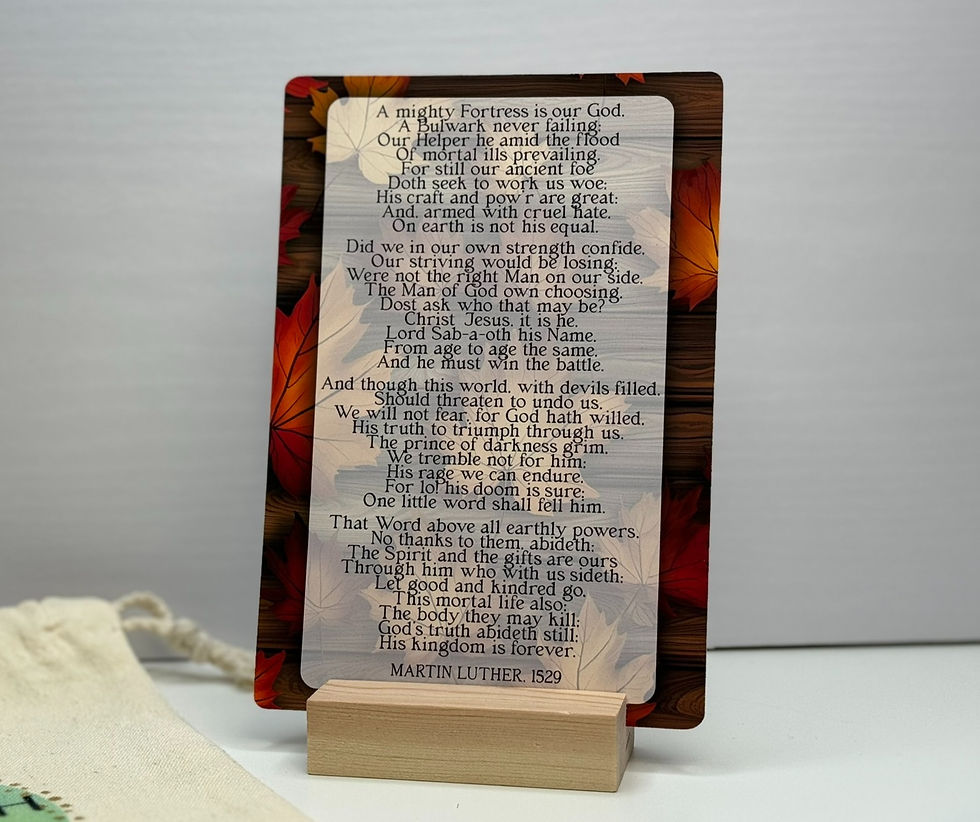 A mighty Fortress is our God.
A Bulwark never failing;
Our Helper he amid the flood
Of mortal ills prevailing.
For still our ancient foe
Doth seek to work us woe;
His craft and pow'r are great;
And, armed with cruel hate,
On earth is not his equal.
Did we in our own strength confide,
Our striving would be losing;
Were not the right Man on our side,
The Man of God own choosing.
Dost ask who that may be?
Christ Jesus, it is he,
Lord Sab-a-oth his Name,
From age to age the same,
And he must win the battle.
And though this world, with devils filled,
Should threaten to undo us,
We will not fear, for God hath willed,
His truth to triumph through us.
The prince of darkness grim,
We tremble not for him;
His rage we can endure,
For lo! his doom is sure;
One little word shall fell him.
That Word above all earthly powers,
No thanks to them, abideth;
The Spirit and the gifts are ours
Through him who with us sideth;
Let good and kindred go,
This mortal life also;
The body they may kill;
God's truth abideth still;
His kingdom is forever.
MARTIN LUTHER, 1529